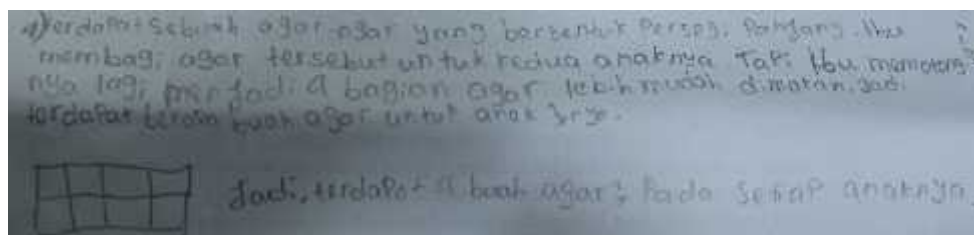 terdapat Sebuah agar-agar yang berbentuk Persegi Panjang. Ibu
membagi agar tersebut untuk kedua anaknya Tapi Ibu memotong
nya lagi menjadi 4 bagian agar lebih mudah dimakan. Jadi
terdapat berapa buah agar untuk anak
Jadi, terdapat 4 buah agar2 Pada setiap anaknya